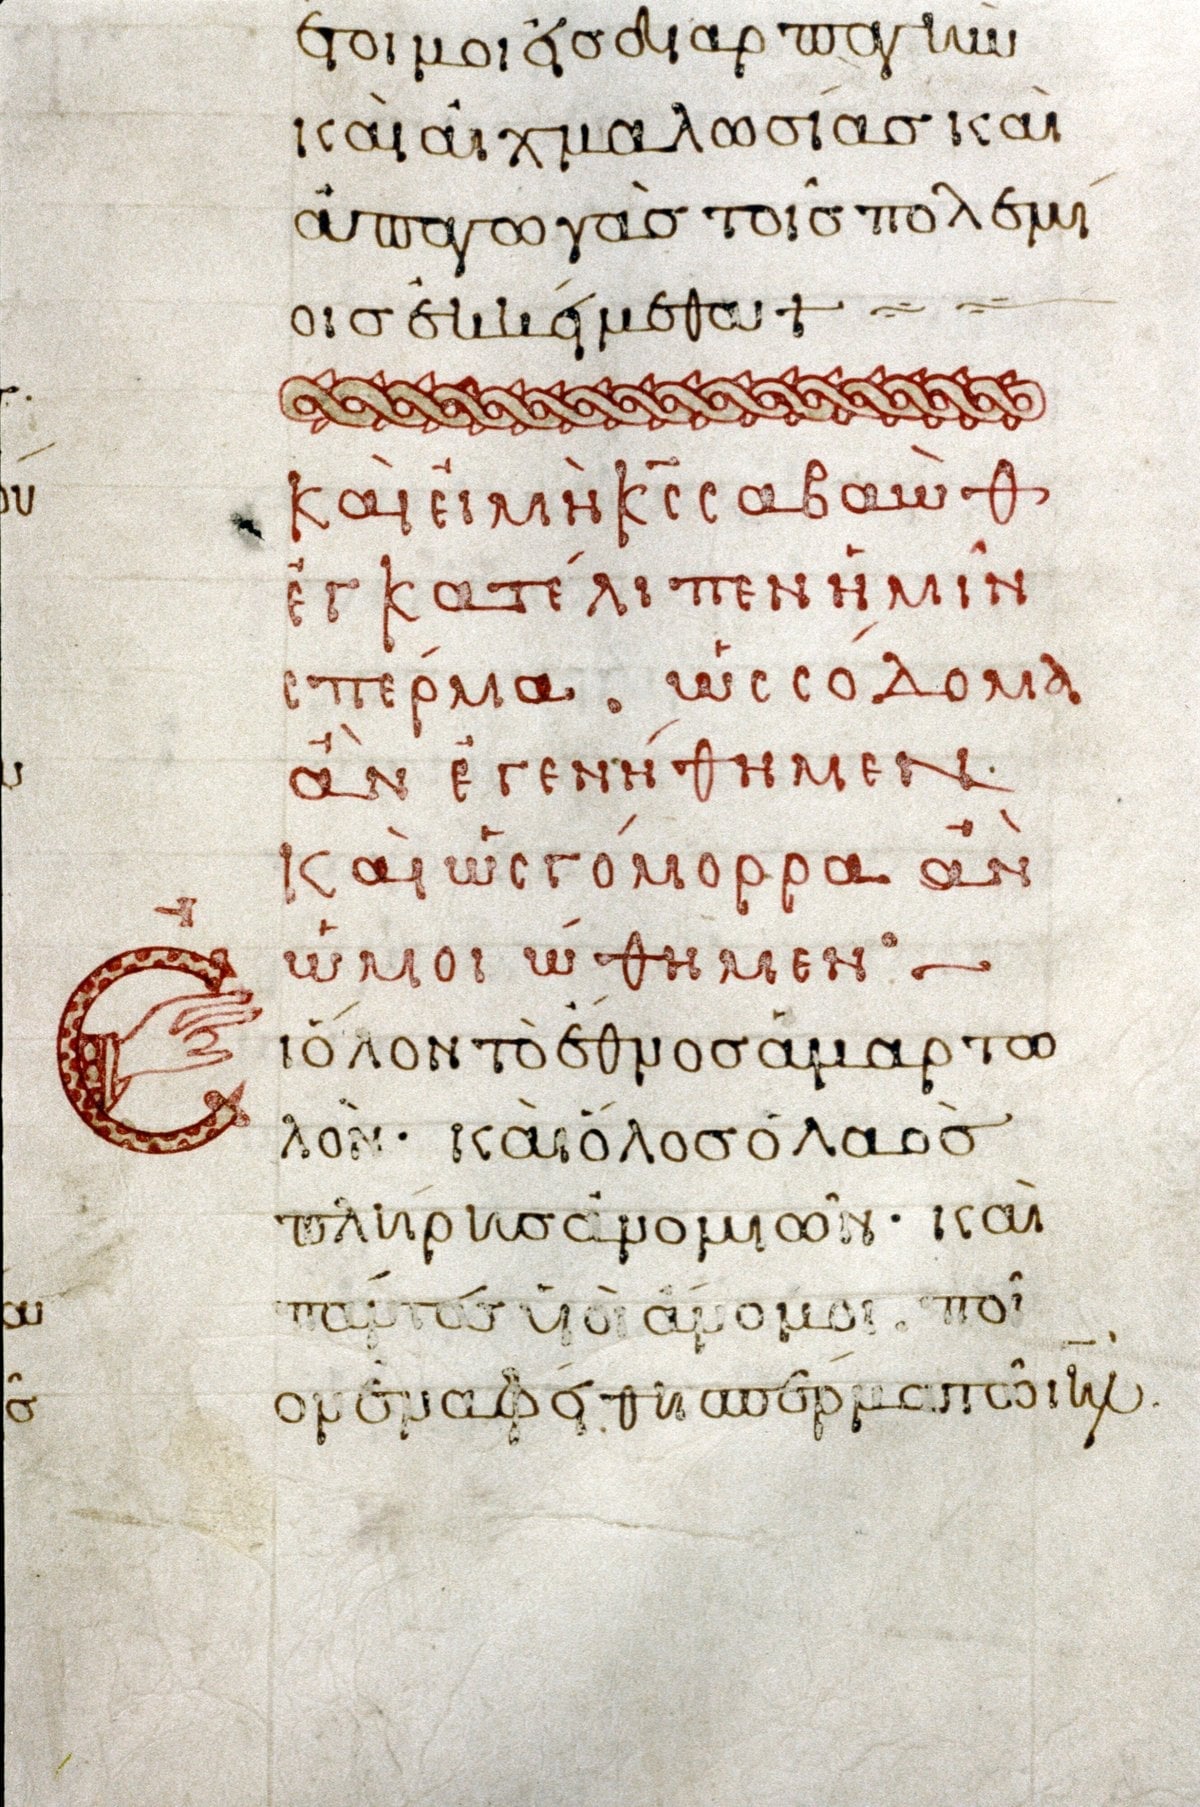 ἕτοιμοι ἐς διαρπαγὴν
καὶ αἰχμαλωσίας καὶ
ἀπαγωγὰς τοῖς πολεμί
οις ἐκκείμεθα +
καὶ εἰ μὴ κ̅ς̅ σαβαὼθ
ἐγκατέλιπεν ἡμῖν
σπέρμα . ὡς σόδομα
ἂν ἐγενήθημεν .
καὶ ὡς γόμορρα ἂν
ὡμοιώθημεν · ~
Εἰ ὅλον τὸ ἔθνος ἁμαρτω
λὸν · καὶ ὅλος ὁ λαὸς
πλήρης ἀνομιῶν · καὶ
πάντες υἱοὶ ἄνομοι . ποῖ
ον ἐναφέθη σπέρμα τῶ ιη̅λ .
ου